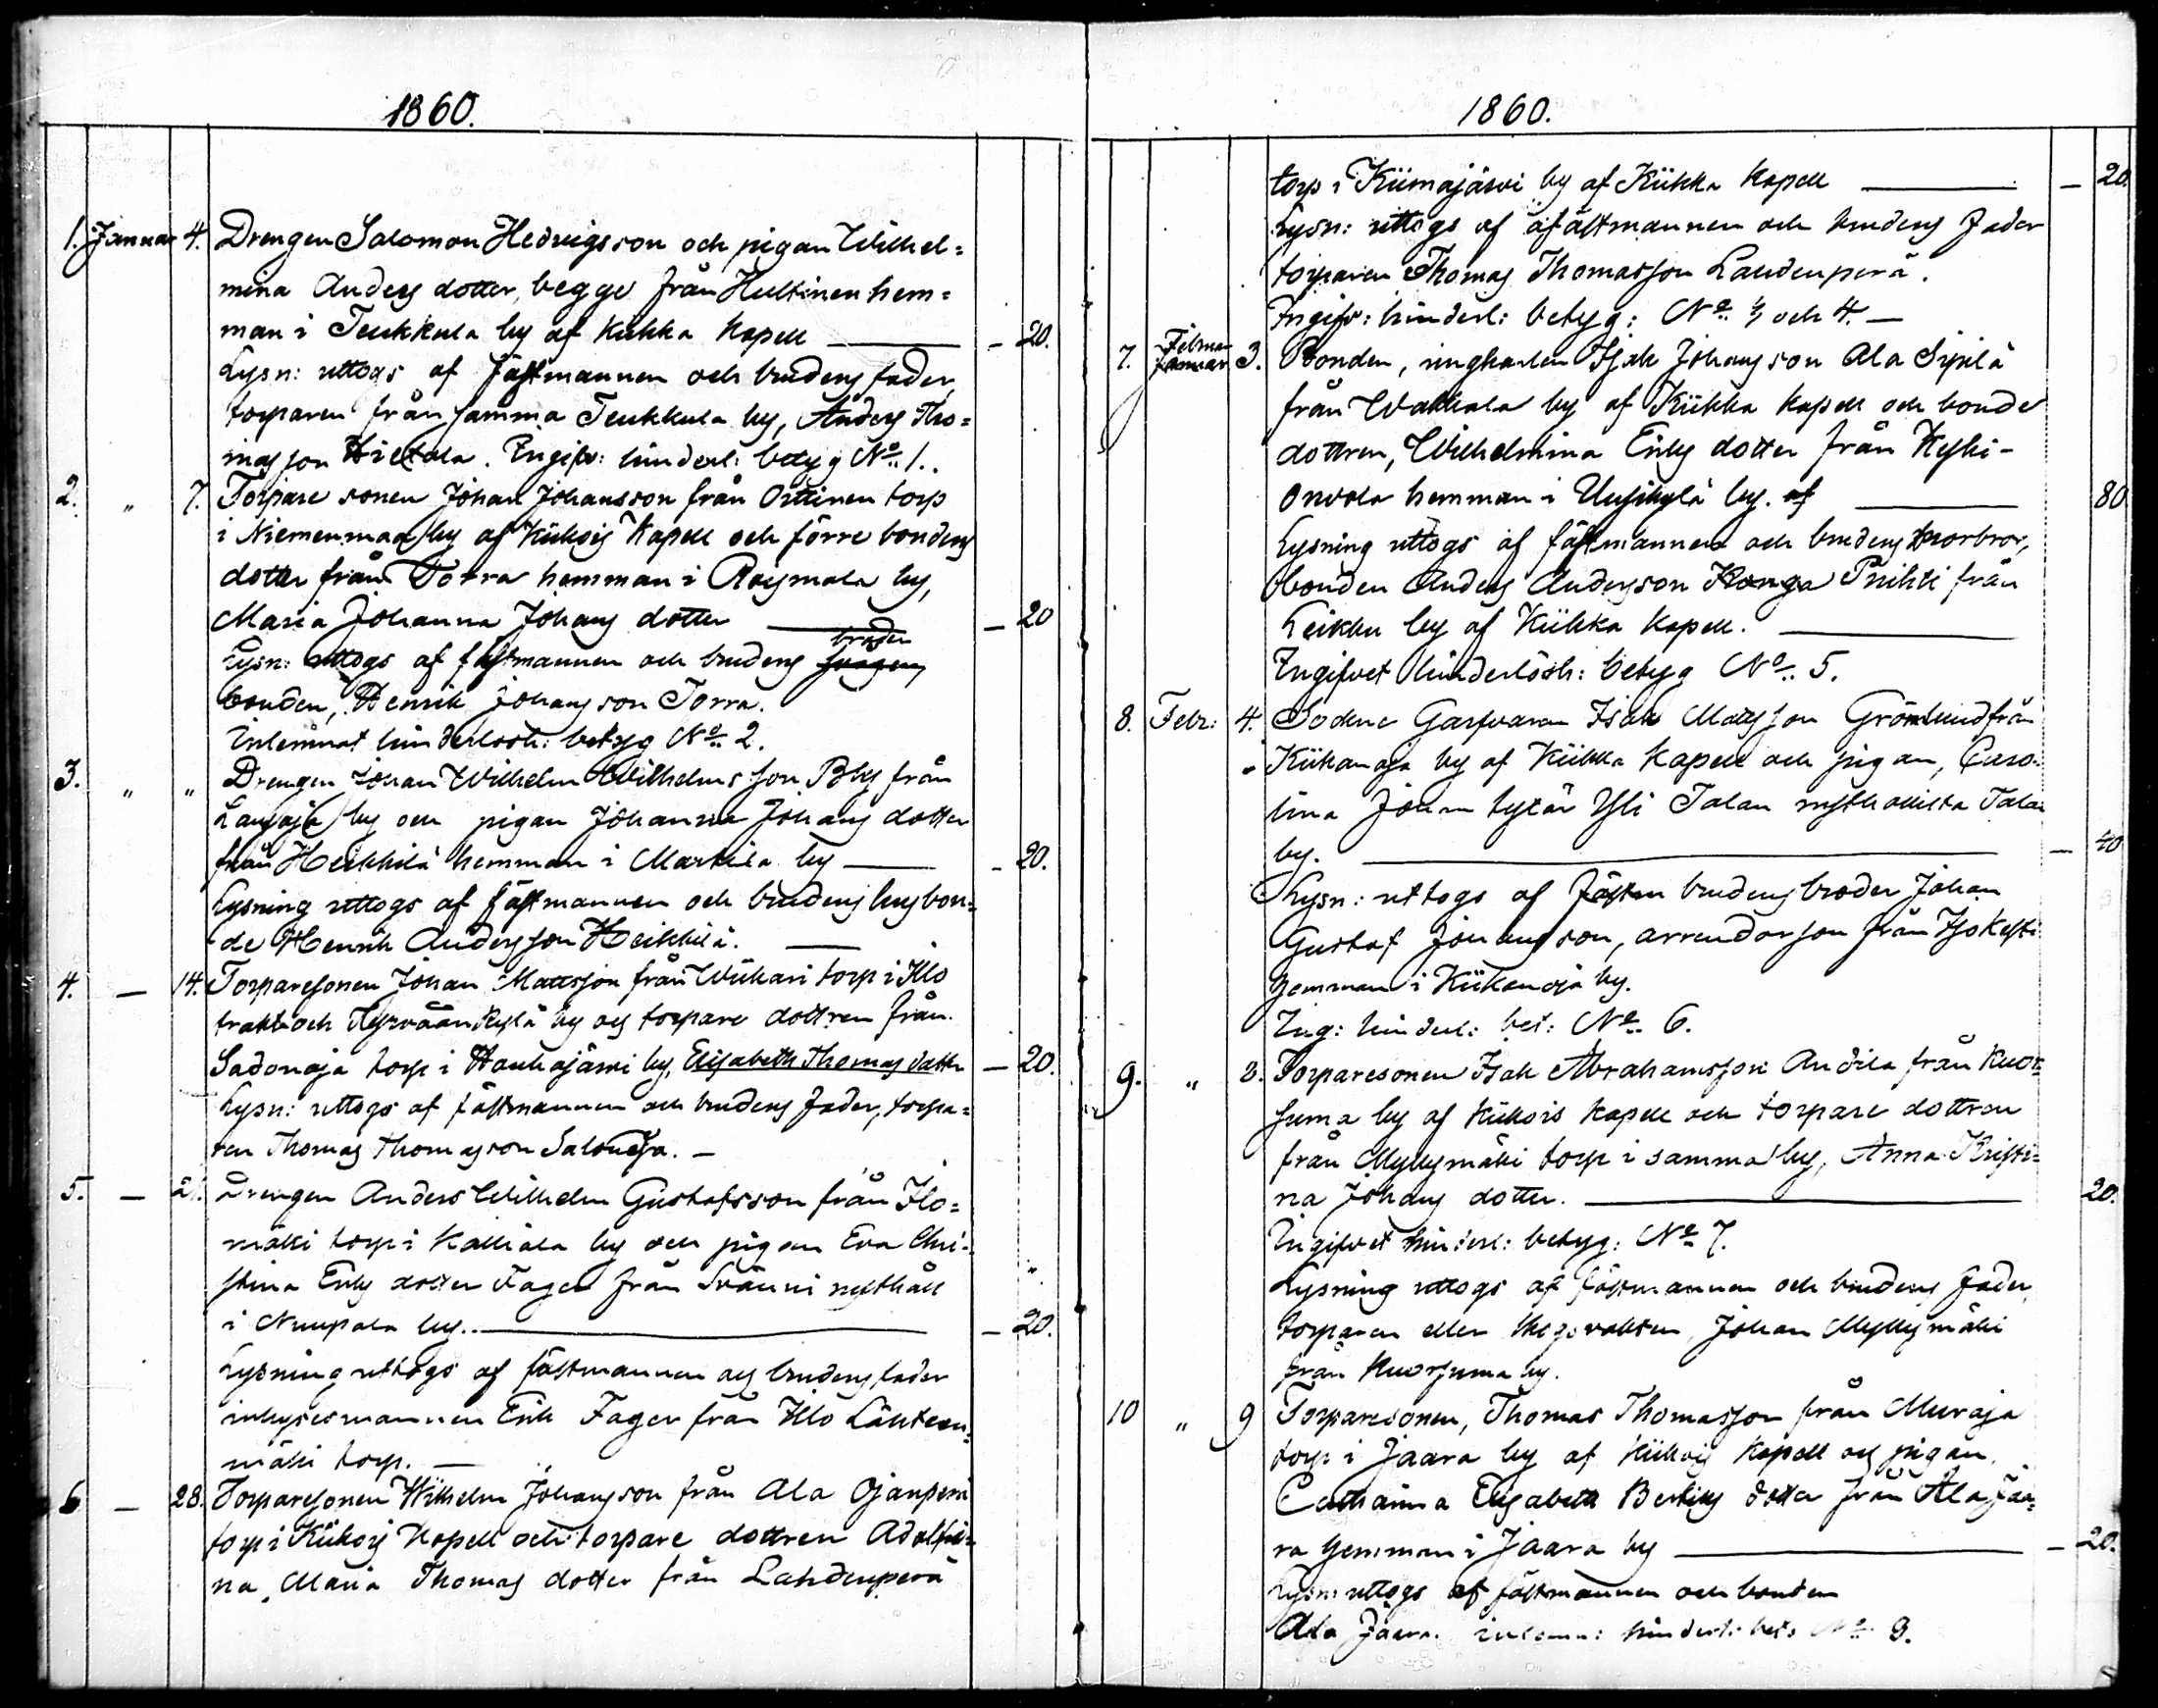 1860.
1. Januar 4. Drengen Salomon Hedvigsson och pigan Wilhel=
mina Anders dotter, begge från Hultinen hem=
man i Teukkula by af Kiikka Kapell — 20.
Lysn: uttogs af fästmannen och brudens fader,
torparen från samma Teukkula by, Anders Tho=
masson Hietala. Ingifv: hinderl: betyg No. 1.
2. " 7. Torpare sonen Johan Johansson från Orttinen torp
i Niemenmaa by af Kiikois Kapell och förre bondens
dotter från Torra hemman i Roismala by,
Maria Johanna Johans dotter — 20
broder
Lysn: uttogs af fästmannen och brudens svagern,
bonden, Henrik Johansson Torra.
Inlemnat hinderlösh: betyg No. 2.
3. " " Drengen Johan Wilhelm Wilhelmsson Bly från
by och pigan Johanna Johans dotter
från Heikkilä hemman i Markila by — 20.
Lysning uttogs af fästmannen och brudens husbon=
de Henrik Andersson Heikkilä.
4. — 14. Torparesonen Johan Mattsson från Wiikari torp i Illo
trakt och Tyrväänkylä by och torpare dottren från
torp i Houhajärvi by, Elisabeth Thomas dotter — 20.
Lysn: uttogs af fästmannen och brudens fader, torpa=
ren Thomas Thomasson
5. — 21. Drengen Anders Wilhelm Gustafsson från Ilo=
mäki torp i Kalliala by och pigan Eva Chri=
stina Eriks dotter Fager från Svänni rusthåll
i Nuupala by. — 20.
Lysning uttogs af fästmannen och brudens fader
inhysesmannen Erik Fager från Illo Lähteen=
mäki torp. —
6 — 28. Torparesonen Wilhelm Johansson från Ala Ojanperä
torp i Kiikois Kapell och torpare dottren Adolfi=
na Maria Thomas dotter från Lahdenperä
1860.
torp i Kiimajärvi by af Kiikka Kapell — 20.
Lysn: uttogs af fästmannen och brudens fader
torparen Thomas Thomasson Lahdenperä.
Ingifv: hinderl: betyg: No. 3 och 4. —
Februar
7. Januar 3. Bonden, ungkarlen Isak Johansson Ala Sipilä
från Wakkala by af Kiikka Kapell och bonde
dottren, Wilhelmina Eriks dotter från Keski-
Onvola hemman i Uusikylä by. af — 80
Lysning uttogs af fästmannen och brudens morbror,
bonden Anders Andersson Konga Prihti från
Leikku by af Kiikka Kapell. —
Ingifvet hinderlösh: betyg No. 5.
8. Febr: 4. Sockne Garfvaren Isak Matsson Grönlund från
Kiikanoja by af Kiikka Kapell och pigan, Caro=
lina Johan tytär Yli Talan rusthollista Tala
by. — 40
Lysn: uttogs af fästm brudens broder Johan
Gustaf Johansson, arrendorson från Iso Keski
hemman i Kiikanoja by.
Ing: hinderl: bet: No. 6.
9. " 8. Torparesonen Isak Abrahamsson Andila från Kuor=
suma by af Kiikois Kapell och torpare dottren
från Myllymäki torp i samma by, Anna Kristi=
na Johans dotter. — 20.
Ingifvet hinderl: betyg: No. 7.
Lysning uttogs af fästmannen och brudens fader,
torparen eller skogsvakten, Johan Myllymäki
från Kuorsuma by.
10 " 9 Torparesonen, Thomas Thomasson från Muraja
torp i Jaara by af Kiikois Kapell och pigan,
Catharina Elisabeth Bertils dotter från Ala Jaa=
ra hemman i Jaara by — 20.
Lysn: uttogs af fästmannen och bonden
Ala Jaara. inlemn: hinderl: bet: No. 8.